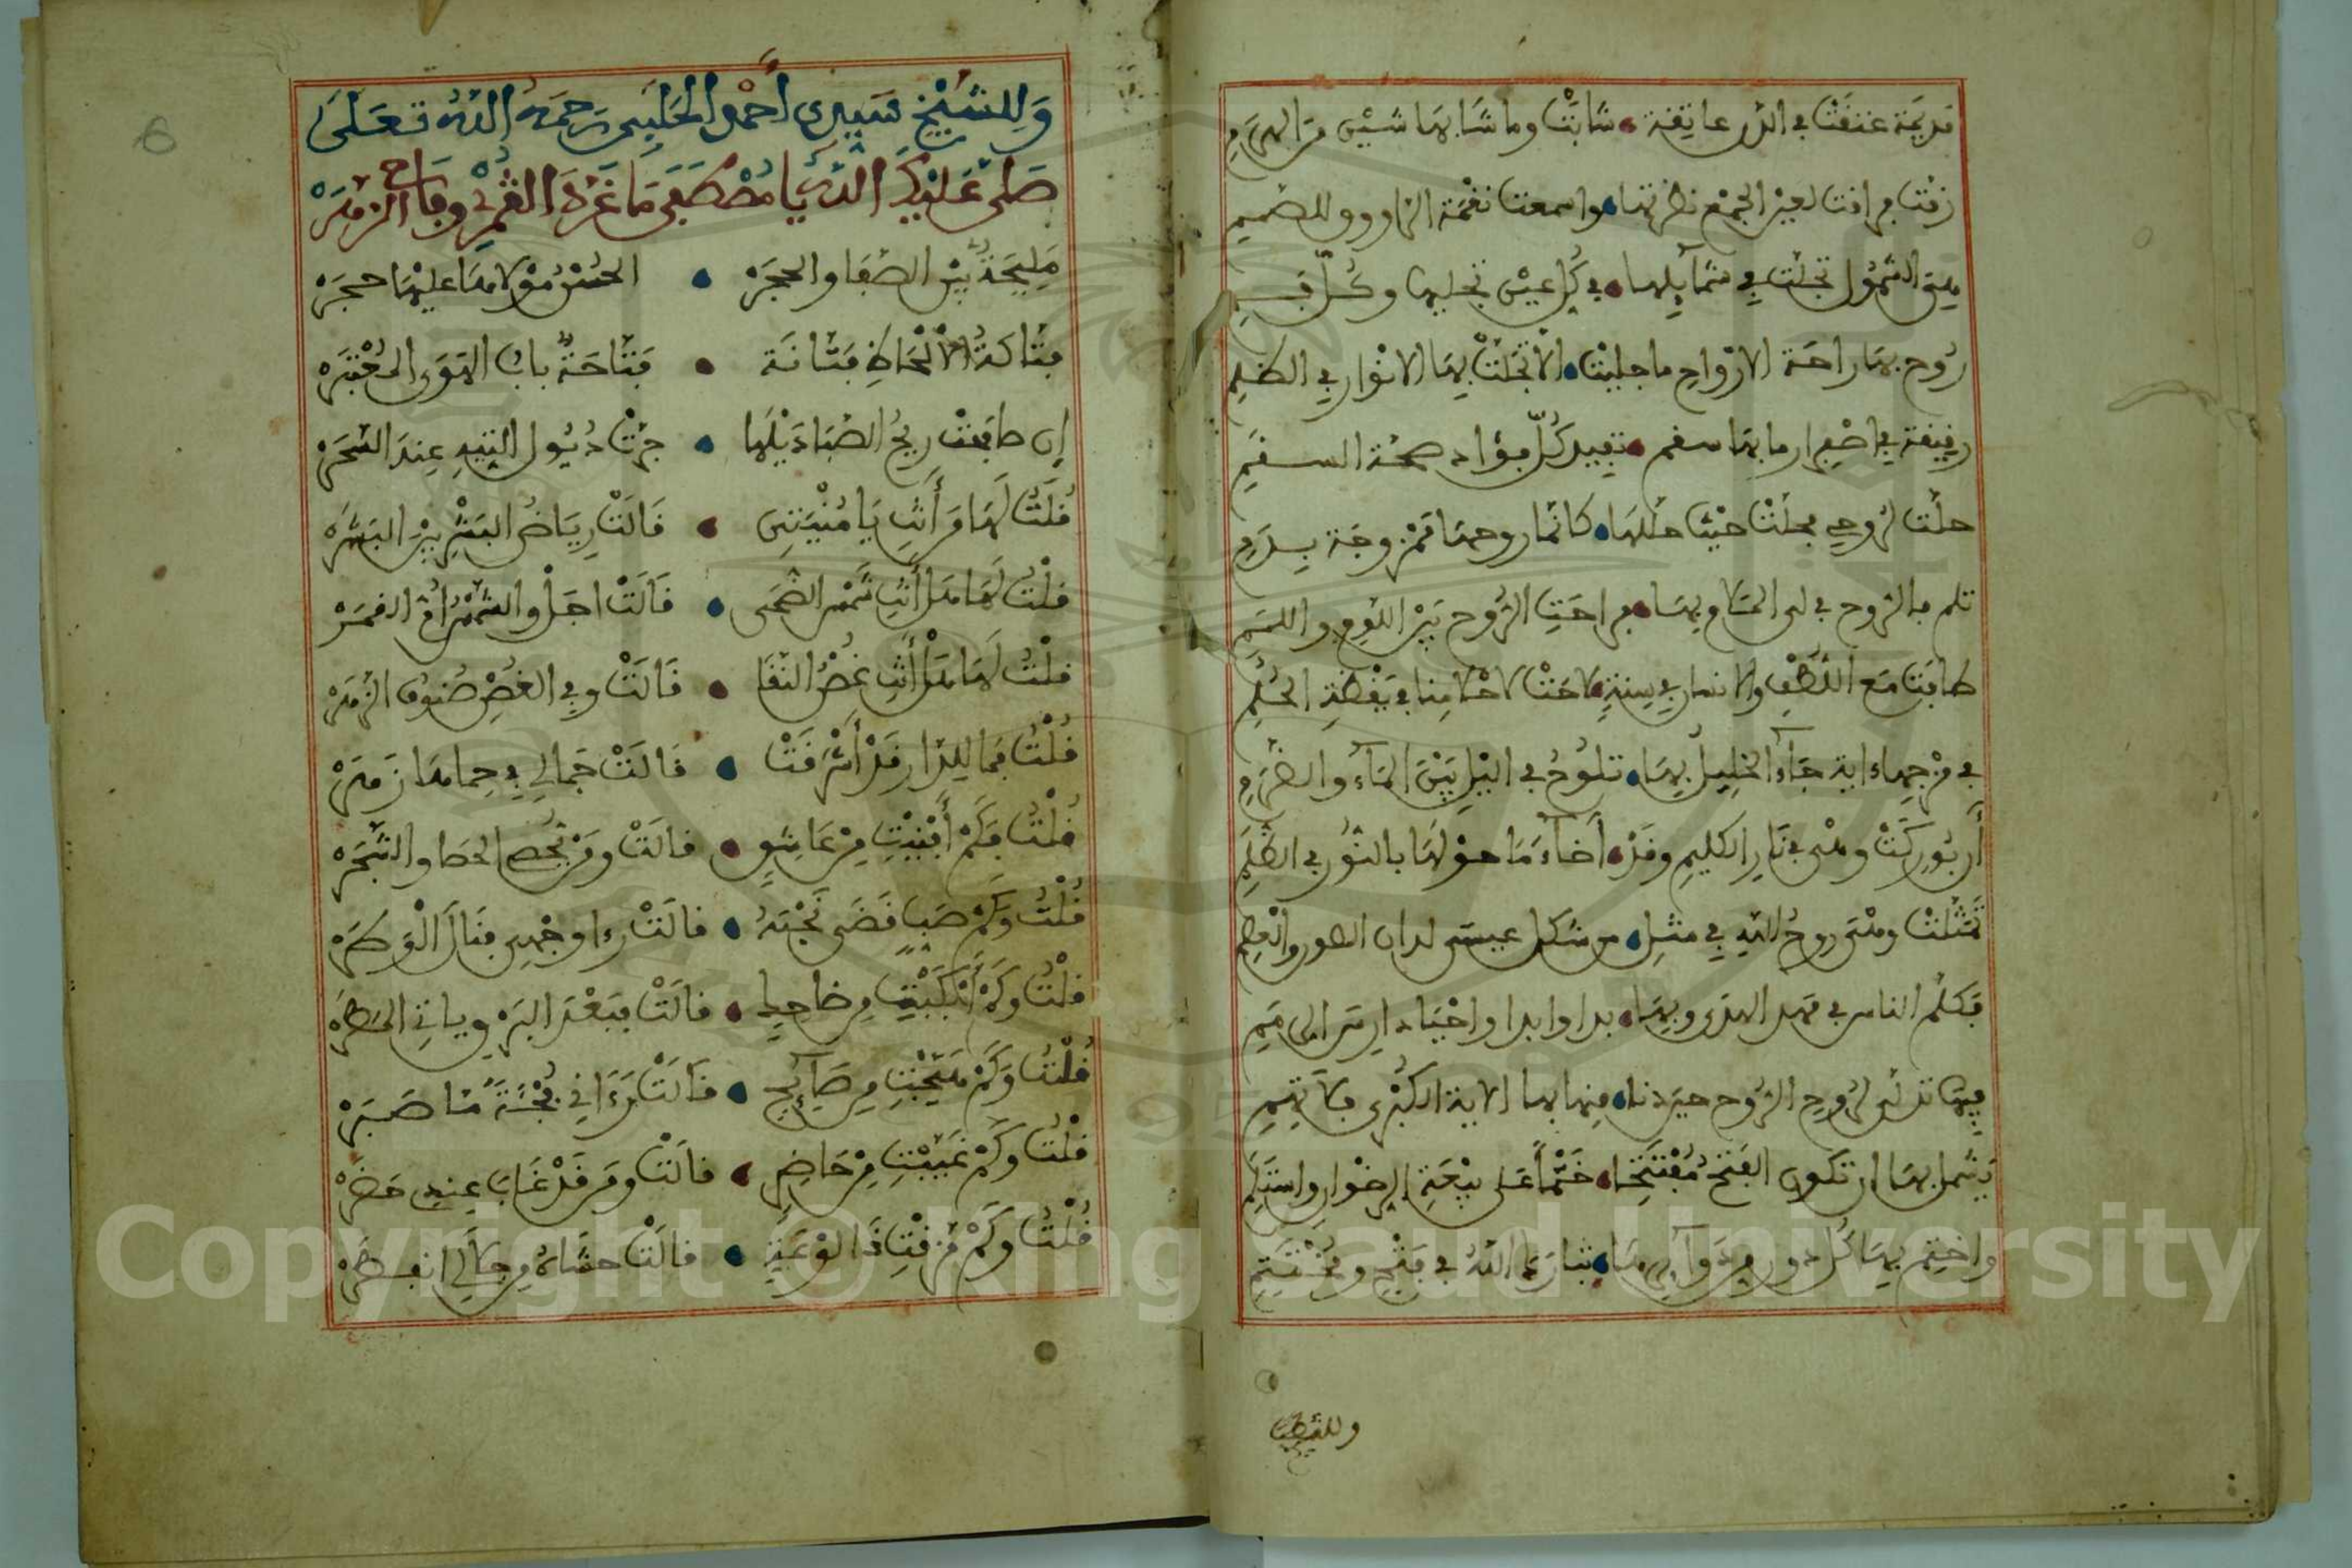 قديمة عتقت في الدن عاتقة • شابت وما شابها شيئ من الهرم
زفت مرافت لعين الجمع نظرتها • واسمعت نغمة الزاوود للصمم
الشمول تجلت في شمآيلها • في كل عين تجليها وكل فم
روح بها راحة الارواح ما جليت • الا تجلت بها الانوار في الظلم
رقيقة في اصفرار ما بها سقم • تفيد كل فؤاد صحة السقم
حلت لروحي محلت حيث حللها • كانما روحها ممزوجة بدم
الروح في لمى • مراحت الروح بين اللوم واللمم
طافت مع اللطف والاندار في سنة • لاحت لاحلامنا في يقظة الحلم
في مزجها ءاية جآء الخليل بها • تلوح في اليل بين المآء والضرم
أن بوركت وهي في نار الكليم وقد • أضآء ما حولها بالنور في الظلم
تمثلت وهي روح الله في مثل • من شكل عيسى لدان الصور والعظم
فكلم الناس في مهد الهدى وبها • بدا وابدا واحيا دارس الرمم
فيها تدلى لروح الروح حين دنا • منها بها الاية الكبرى فلا تهم
يشمل بها ان تكون الفتح مفتتحا • ختما على بيعة الرضوان واستلم
واختم بها كل دور من دوآير ها • تبارك الله في فتح ومختتم
وللشيخ
وللشيخ سيدي أحمد الحليبي رحمه الله تعلى
صلى عليك الله يا مصطفى ما غرد القمري وفاح الزهر
مليحة بين الصفا والحجر • الحسن مولاها عليها حجر
فتاكة الالحاظ فتانة • فتاحة باب الهوى
إن صافحت ريح الصبا ذيلها • جرت ذيول التيه عند السحر
قلت لها من أنت يا منيتي • قالت رياض البشر بين البشر
قلت لها هل أنت شمس الضحى • قالت اجل والشمس أخت القمر
قلت لها هل أنت غصن النقا • قالت وفي الغصن صنوف الزهر
قلت فما للدار قد أشرقت • قالت جمالي في حماها زهر
قلت فكم أفنيت من عاشق • قالت ومن يحص الحصا والشجر
قلت وكم صب قضى نحبه • قالت رءا وجهي فنال الوطر
قلت وكم أبكيت من ضاحك • قالت فبعد البرق ياتي المطر
قلت وكم هيجت من صآيح • قالت رءاني بختة ما صبر
قلت وكم غيبت من حاضر • قالت ومن قد غاب عندي حضر
قلت وكم مزقت ذا لوعة • قالت حشاه من جمالي انفطر